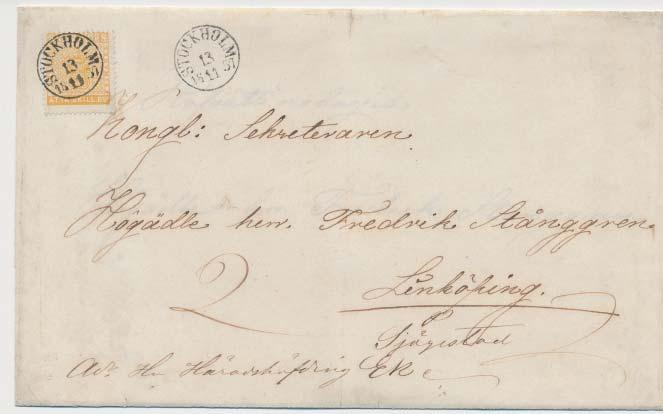 STOCKHOLM
13
11
STOCKHOLM
13
11
Kongl: Sekreteraren
Högädle herr. Fredrik Stånggren.
2
Linköping.
Sjögestad
Adr. Hr Häradshöfding Ek